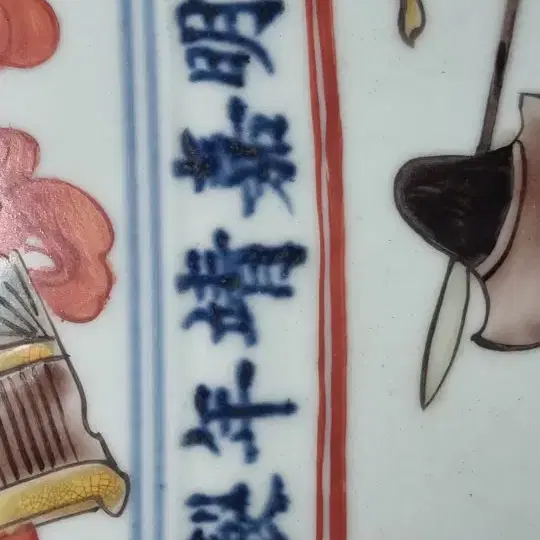 明嘉靖年製